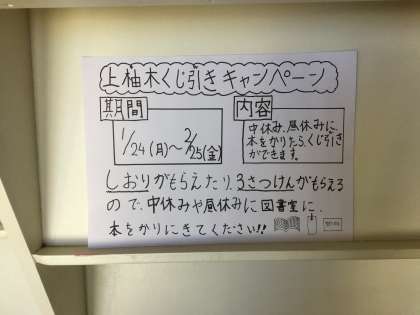 上柚木くじ引きキャンペーン
期間
1/24(月)〜2/25(金)
内容
中休み、昼休みに、
本をかりたら、くじ引き
ができます。
しおりがもらえたり、3さつけんがもらえる
ので、中休みや昼休みに図書室に、
本をかりにきてください!!